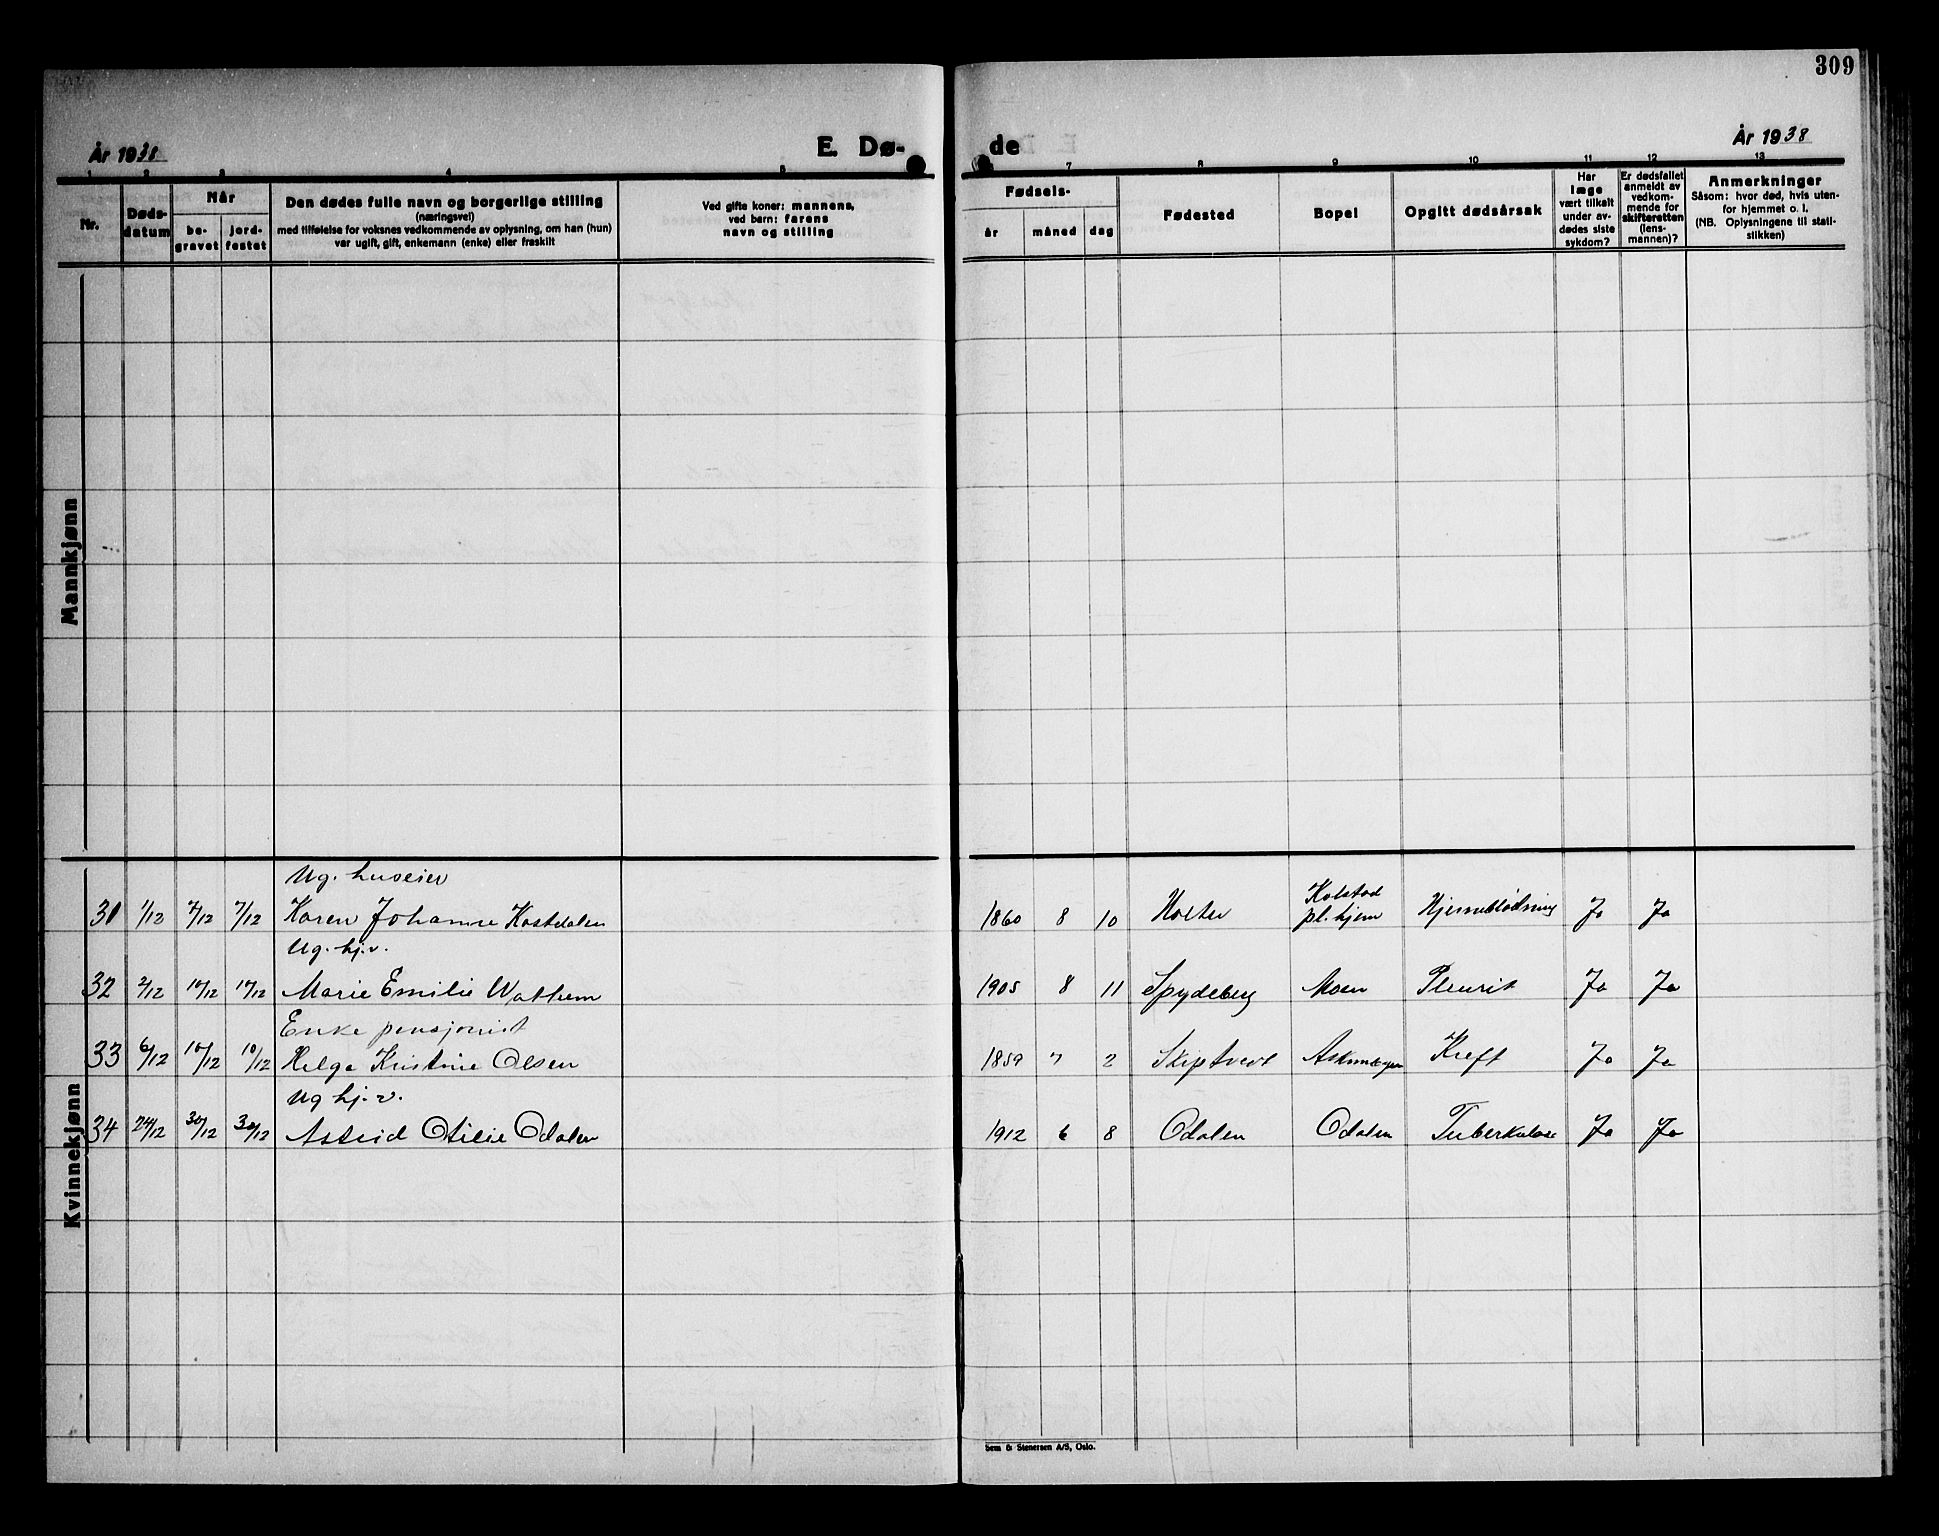 309
År 1938
E. Dø-
de
År 1938
1 2 3 4 5
7 8 9 10 11 12 13
Nr.
Døds-
datum
Når
be-
gravet
jord-
festet
Den dødes fulle navn og borgerlige stilling
(næringsvei)
med tilføielse for voksnes vedkommende av oplysning, om han (hun)
var ugift, gift, enkemann (enke) eller fraskilt
Ved gifte koner: mannens,
ved barn: farens
navn og stilling
Fødsels-
år måned dag
Fødested
Bopel
Opgitt dødsårsak
Har
læge
vært tilkalt
under av-
dødes siste
sykdom?
Er dødsfallet
anmeldt av
vedkom-
mende for
skifteretten
(lens-
mannen)?
Anmerkninger
Såsom: hvor død, hvis uten-
for hjemmet o. l.
(NB. Oplysningene til stati-
stikken)
Mannkjønn
Kvinnekjønn
Ug. huseier
31 1/12 7/12 7/12 Karen Johanne 1860 8 10 Kolstad
pl.hjem Hjerneblødning Ja Ja
Ug. hj.v.
32 2/12 Marie Emilie 1905 8 11 Spydeberg Moen Pleurit Ja Ja
Enke pensjonist
33 6/12 10/12 10/12 Helga Kristine Olsen 1859 7 2 Skiptvedt Kreft Ja Ja
Ug hj.v.
34 24/12 30/12 30/12 Astrid Otilie Odalen 1912 6 8 Odalen Odalen Tuberkulose Ja Ja
Sem & Stenersen A/S, Oslo.